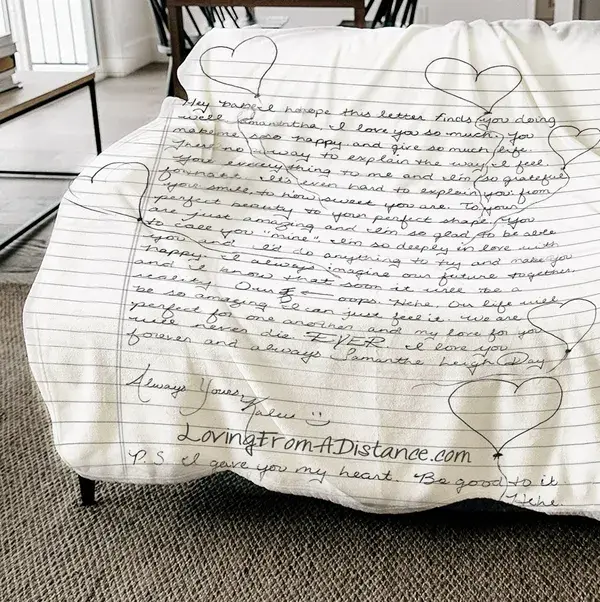 Hey babe, I hope this letter finds you doing
well. Samantha, I love you so much. You
make me soso happy and give so much life.
Theres no way to explain the way I feel.
Your everything to me and I'm so grateful
for that. It's even hard to explain you from
your smile, to how sweet you are. To your
perfect beauty to your perfect shape. You
are just amazing and I'm so glad to be able
to call you "mine". I'm so deeply in love with
you and I'd do anything to try and make you
happy. I always imagine our future together
and I know that soon it will be a
reality. Our oops. Hehe. Our life will
be so amazing I can just feel it. We are
perfect for one another and my love for you
will never die. EVER. I love you
forever and always Samantha Leigh Day
Always Yours,
Kaleu :)
LovingFromADistance.com
P.S. I gave you my heart. Be good to it
Hehe.